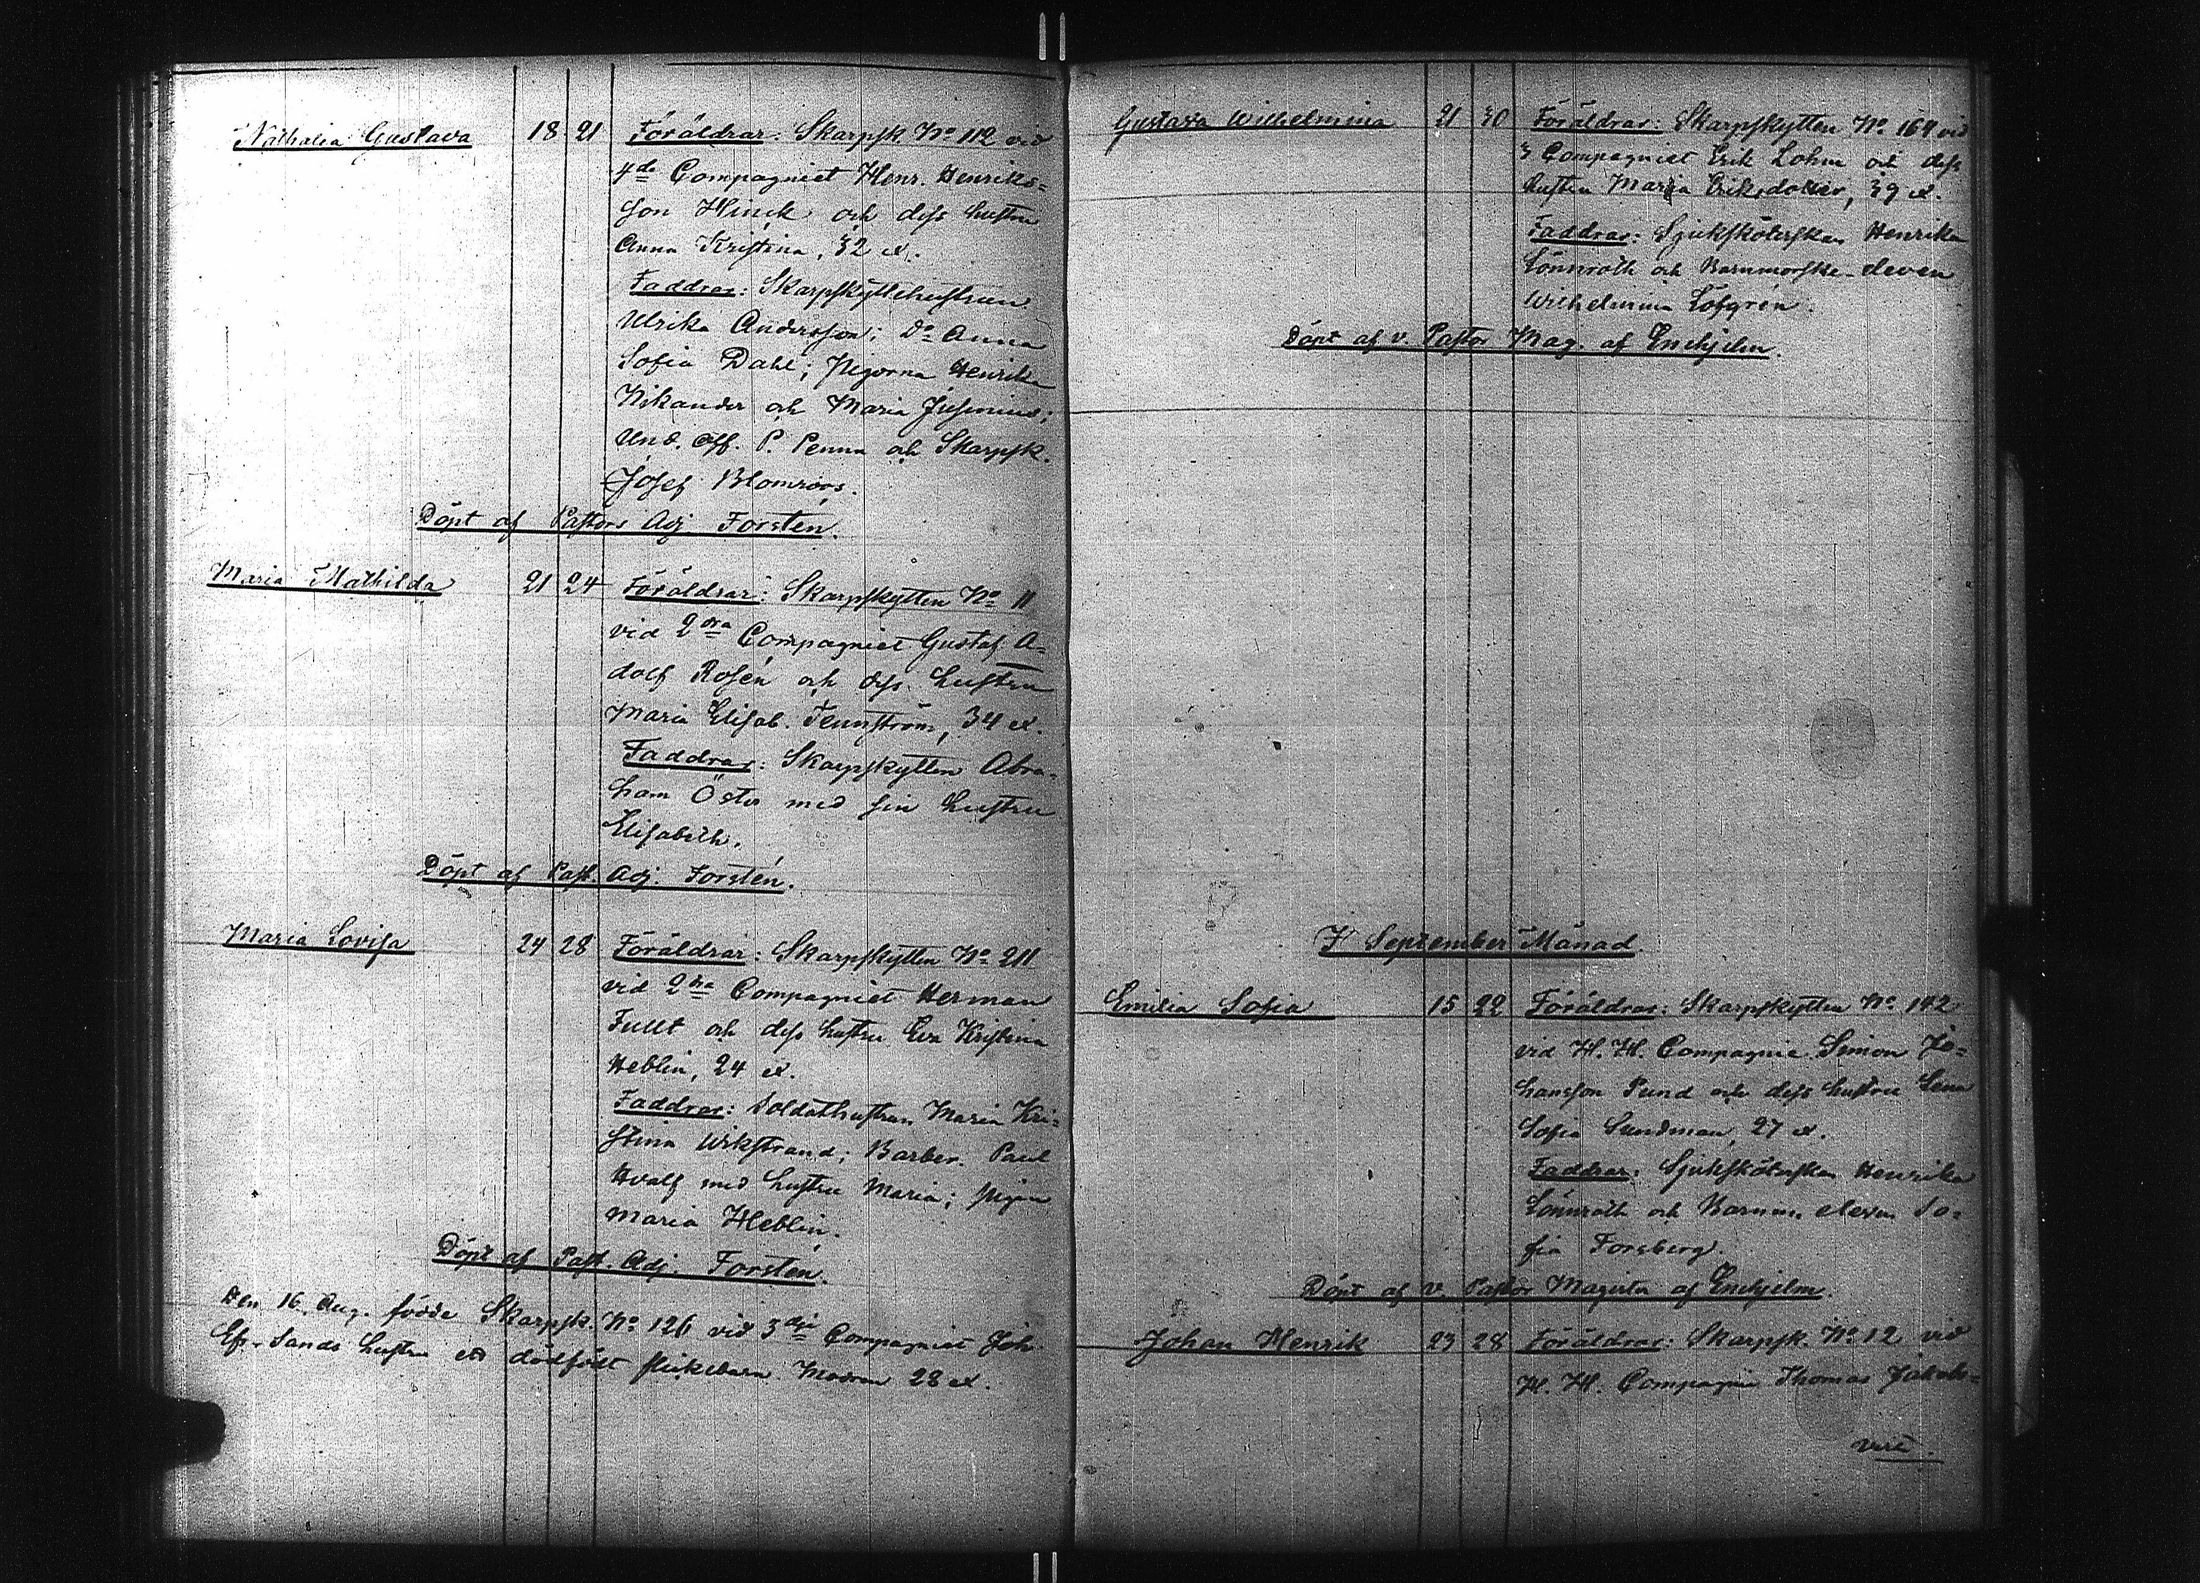 Nathalia Gustava 18 21 Föräldrar: Skarpsk. No 112 vid
4de Compagniet Henr. Henriks=
son Hinck och dess hustru
Anna Kristina, 32 
Faddrar: Skarpskyttehustrun
Ulrika Andersson; Do Anna
Sofia Dahl; pigorna Henrika
Nikander och Maria
Und. Off. P. Penna och Skarpsk.
Josef Blomroos.
Döpt af Pastors Adj. Forstén.
Maria Mathilda 21 24 Föräldrar: Skarpskytten No 11
vid 2dra Compagniet Gustaf A=
dolf Rosén och dess hustru
Maria Elisab. Tennström, 34
Faddrar: Skarpskytten Abra=
ham Öster med sin hustru
Elisabeth.
Döpt af Past. Adj. Forstén.
Maria Lovisa 24 28 Föräldrar: Skarpskytten No 211
vid 2dra Compagniet Herman
Fullt och dess hustru Eva Kristina
Heblin, 24
Faddrar: Soldathustrun Maria Kri=
stina Wikstrand; Barber. Paul
Hvalf med hustru Maria; pigan
Maria Heblin.
Döpt af Past. Adj. Forstén.
Den 16. Aug. födde Skarpsk. No 126 vid 3dje Compagniet Joh.
Efr. Sands hustru ett dödfödt flickebarn. Modren 28
Gustava Wilhelmina 21 30 Föräldrar: Skarpskytten No 164 vid
3 Compagniet Erik Lohm och dess
hustru Maria Eriksdotter, 39
Faddrar: Sjuksköterskan Henrika
Lönnroth och Barnmorske-eleven
Wilhelmina Löfgrén.
Döpt af v. Pastor Mag. af Enehjelm.
I September Månad.
Emilia Sofia 15 22 Föräldrar: Skarpskytten No 142
vid H. H. Compagnie Simon Jo=
hansson Pund och dess hustru Lena
Sofia Sundman, 27
Faddrar: Sjuksköterskan Henrika
Lönnroth och Barnm. eleven So=
fia Forsberg.
Döpt af v. Pastor Magister af Enehjelm.
Johan Henrik 23 28 Föräldrar: Skarpsk. No 12 vid
H. H. Compagnie Thomas Jakobs=